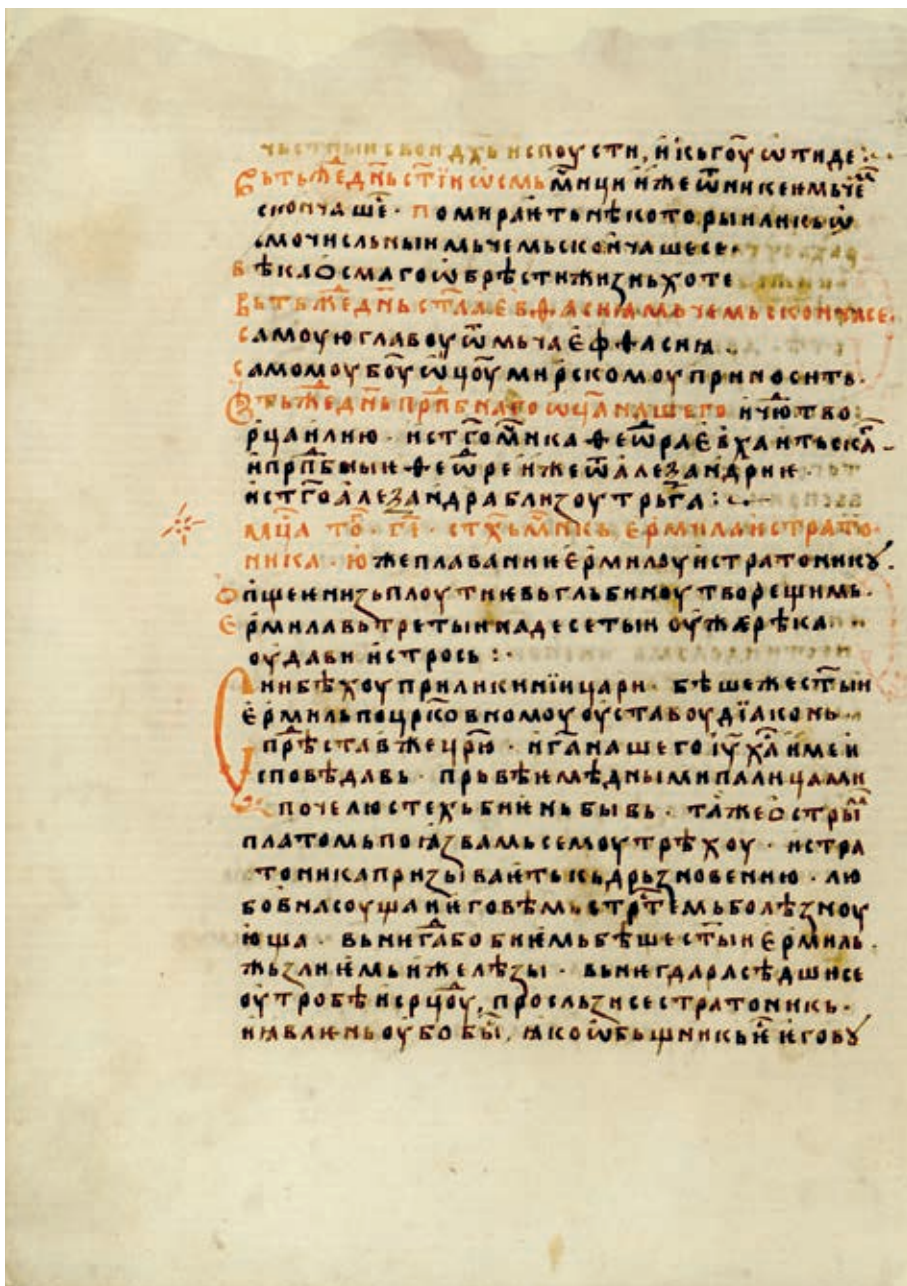 чьстныи свои дх҃ь испоусти, и кь гоу҃ ѿтиде :
Вь тьжⷣе дн҃ь ст҃ӏи ѡсмь мⷱници иже ѿ никеи мьчеⷨ
скончашеⷭ · помираить нѣкоторыи ликь ѡ
смочисльныи мьчемь скончаше се ·
вѣка осмаго ѡбрѣсти жизнь хоте
Вь тьжⷣе дн҃ь ст҃ла евфасиꙗ мьчемь сконча се.
самоую главоу ѿ мьча еффасиꙗ
самомоу боу҃ ѡцоу҃ мирскомоу приносить.
Вь тьжⷣе дн҃ь прпⷣбнаго ѡца҃ нашего и чюⷣтво
рца илию · и ст҃го мⷱника феѡⷣра евхаитьскаⷢ
и прпⷣбныи феѡⷣре иже ѿ алеѯандрие ·
и ст҃го алеѯандра близоу трьга :
мцⷭа тоⷢ · гӏ҃ · стⷯхь мⷱникь, ермила и страто
ника · юже плавание ермилоу и стратоникꙋ.
опщение изь плоути и вь глъбиноу творещимь.
Ермила вь третыи на десеты и оужꙗ рѣка
оудави и стрось :
Сии бѣхоу при ликинӏи цари · бѣше же ст҃ыи
ермиль по црⷦовномоу оуставоу дӏаконь
прѣⷣставⸯже црⷭю · и га҃ нашего ӏу҃ ха҃ име и
сповѣдавь · прьвѣе мѣдными палицами
по челюстехь биень бывь · таже острыⷨ
платомь по ꙗзвамь семоу трѣхоу · и стра
тоника призываить кь дрьзновению · лю
бовна соуща и него вѣмь стртⷭемь болѣзноу
юща · вьнигⷣа бо биемь бѣше ст҃ыи ермиль ·
жьзлиемь и желѣзы · вьнегда расѣдши се
оутробѣ и срцⷣоу, просльзи се стратоникь ·
и ꙗвлѥнь оубо быⷭ, ꙗко ѡбьщникь ѥⷭ и говꙋ